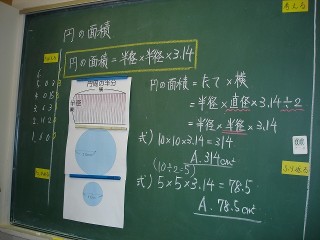 円の面積
円の面積＝半径×半径×3.14
円周の半分
半径
円の面積＝たて×横
＝半径×直径×3.14÷2
＝半径×半径×3.14
式）10×10×3.14＝314
A.314cm²
(10÷2=5)
式）5×5×3.14＝78.5
A.78.5cm²
考える
ふり返る